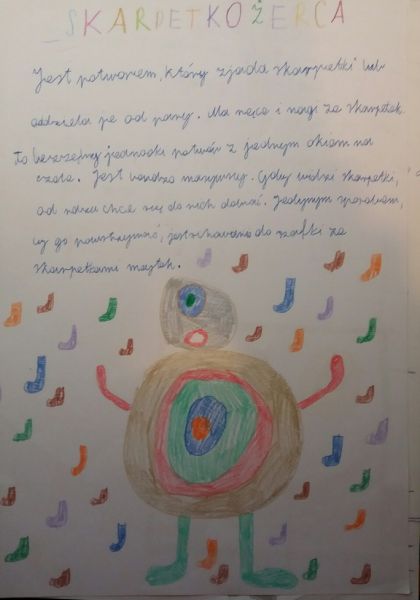 SKARPETKOŻERCA
Jest potworem, który zjada skarpetki lub
oddziela je od pary. Ma ręce i nogi ze skarpetek.
To bezczelny jednooki potwór z jednym okiem na
czole. Jest bardzo Gdy widzi skarpetki,
od razu chce się do nich dobrać. Jedynym sposobem,
by go powstrzymać, jest chowanie do szafki ze
skarpetkami majtek.